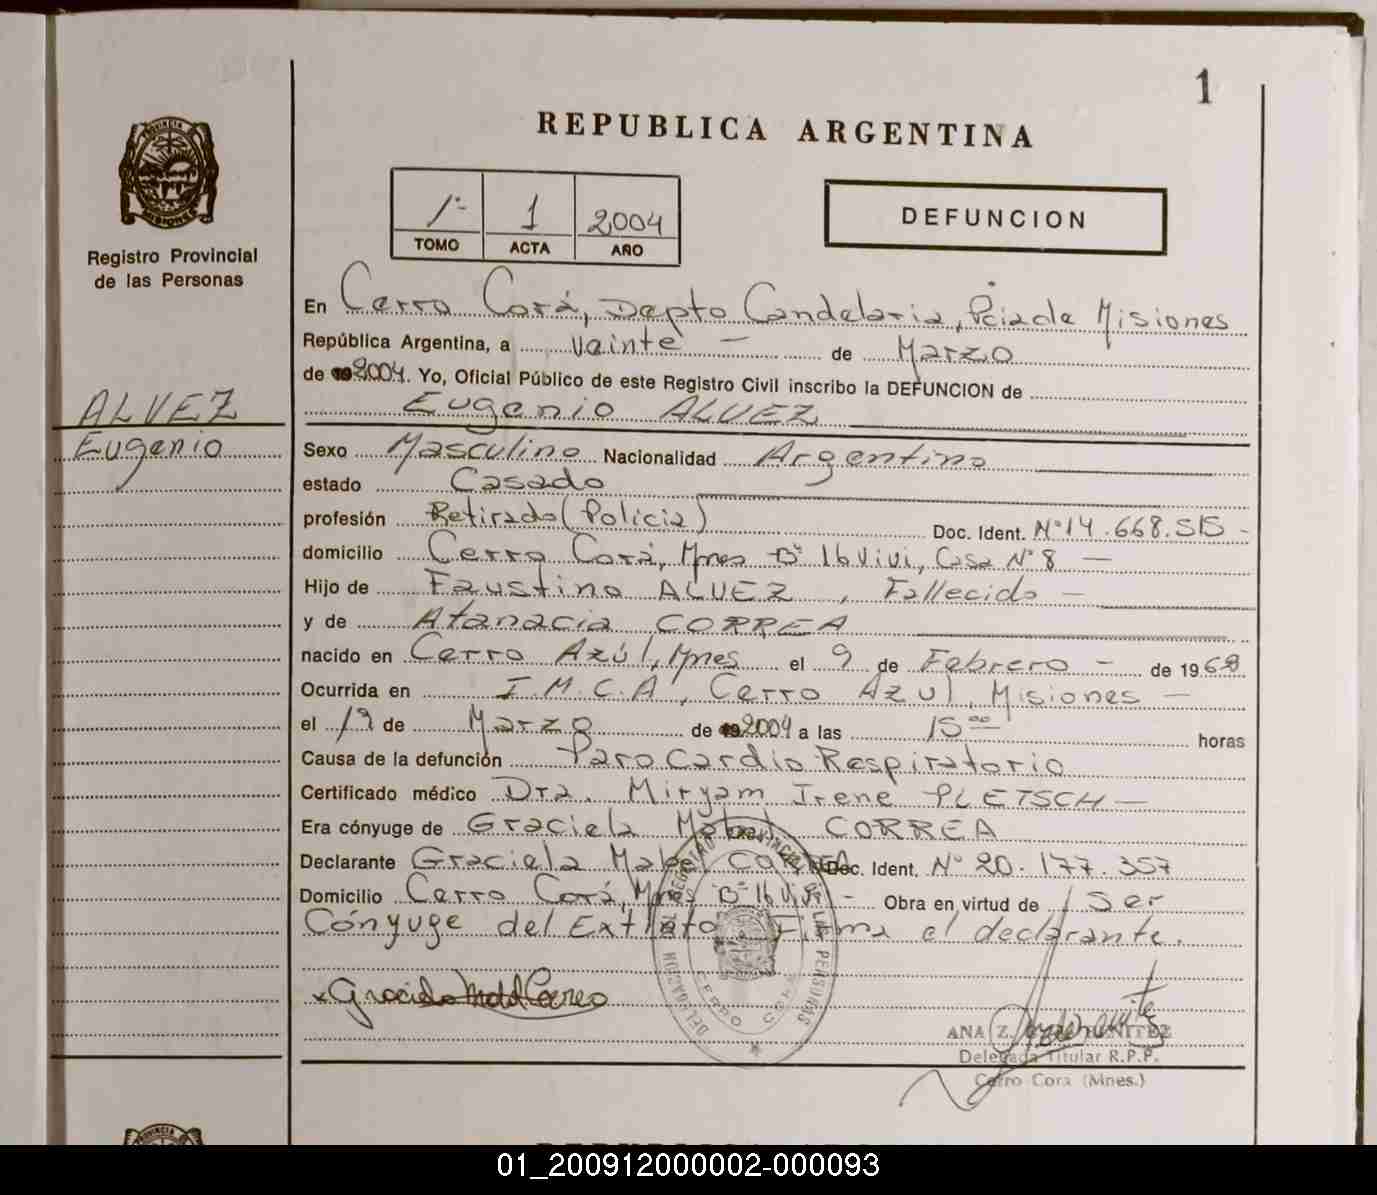 1
REPUBLICA ARGENTINA
PROVINCIA DE
MISIONES
Registro Provincial
de las Personas
1º- 1 2004
TOMO ACTA AÑO
DEFUNCION
En Cerro Corá, Depto Candelaria, Pcia de Misiones
República Argentina, a Veinte - de Marzo
de 2004. Yo, Oficial Público de este Registro Civil inscribo la DEFUNCION de
Eugenio ALVEZ
ALVEZ
Eugenio
Sexo Masculino Nacionalidad Argentina
estado Casado
profesión Retirado (Policia) Doc. Ident. Nº 14.668.515 -
domicilio Cerro Corá, Mnes Bº 16 Vivi, Casa Nº 8 -
Hijo de Faustino ALVEZ, Fallecido -
y de Atanacia CORREA
nacido en Cerro Azúl, Mnes el 9 de Febrero - de 196
Ocurrida en I.M.C.A, Cerro Azul, Misiones -
el 19 de Marzo de 2004 a las 15 00 horas
Causa de la defunción Paro Cardio Respiratorio
Certificado médico Dra. Miryam Irene PLETSCH -
Era cónyuge de Graciela Mabel CORREA
Declarante Graciela Mabel CORREA Doc. Ident. Nº 20.177.357
Domicilio Cerro Corá, Mnes Bº 16 Vivi - Obra en virtud de Ser
Cónyuge del Extinto Firma el declarante.
x Graciela Mabel Correa
DELEGACION DEL REGISTRO PROVINCIAL DE LAS PERSONAS
CERRO CORA
ANA Z. BENITEZ
Delegada Titular R.P.P.
Cerro Cora (Mnes.)
PROVINCIA DE
01_200912000002-000093